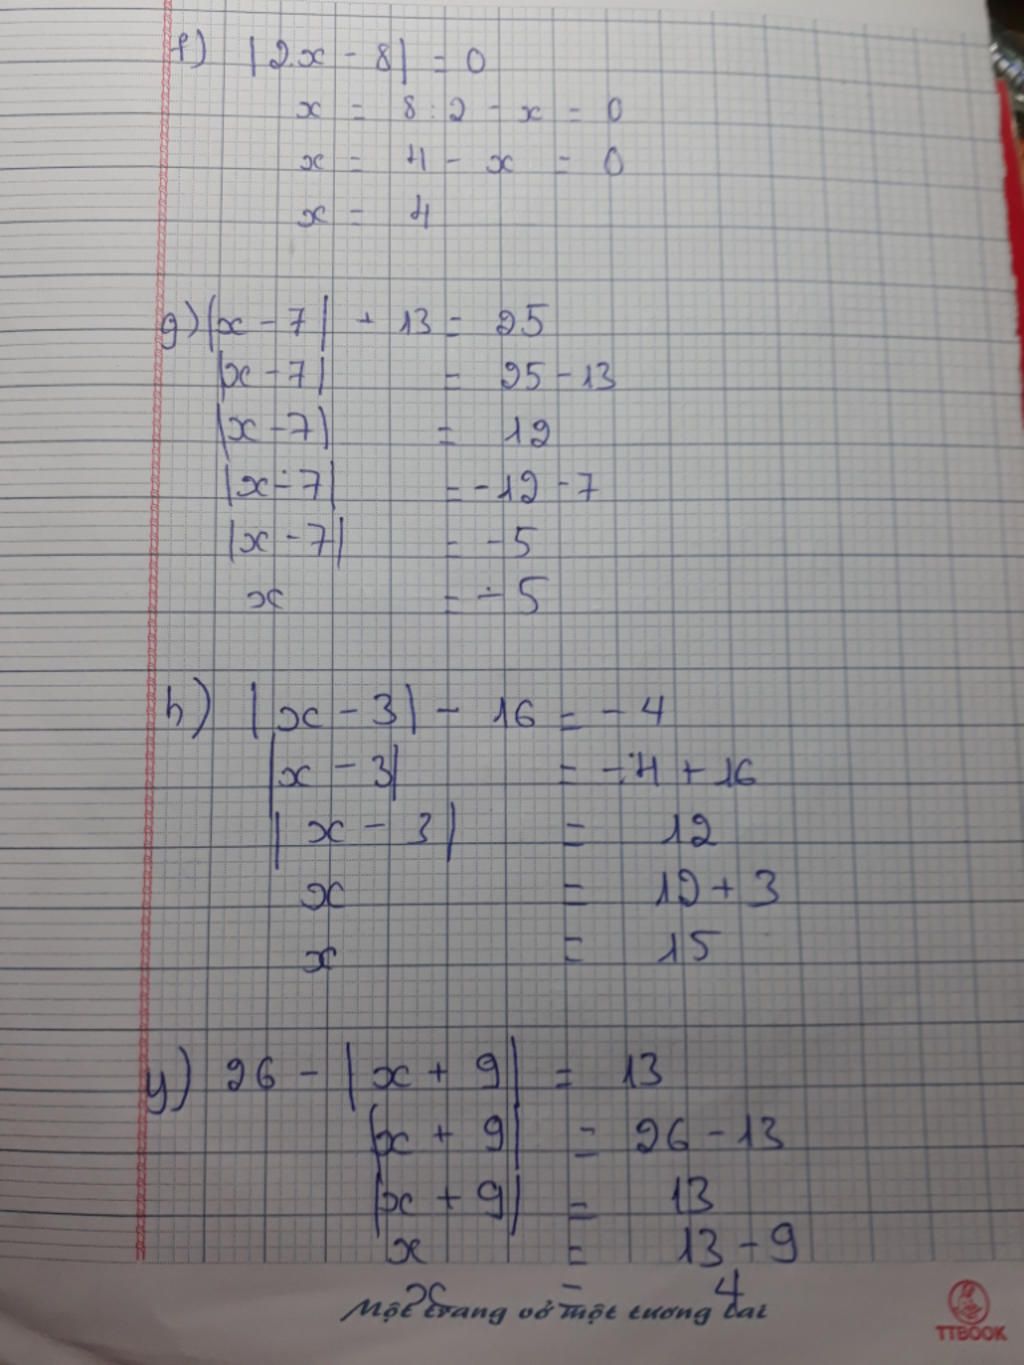 f) |2x - 8| = 0
x = 8 : 2 - x = 0
x = 4 - x = 0
x = 4
g) |x - 7| + 13 = 25
|x - 7| = 25 - 13
|x - 7| = 12
|x - 7| = -12 - 7
|x - 7| = -5
x = -5
h) |x - 3| - 16 = -4
|x - 3| = -4 + 16
|x - 3| = 12
x = 12 + 3
x = 15
y) 26 - |x + 9| = 13
|x + 9| = 26 - 13
|x + 9| = 13
x = 13 - 9
x = 4
Một trang vở một tương lai
TTBOOK